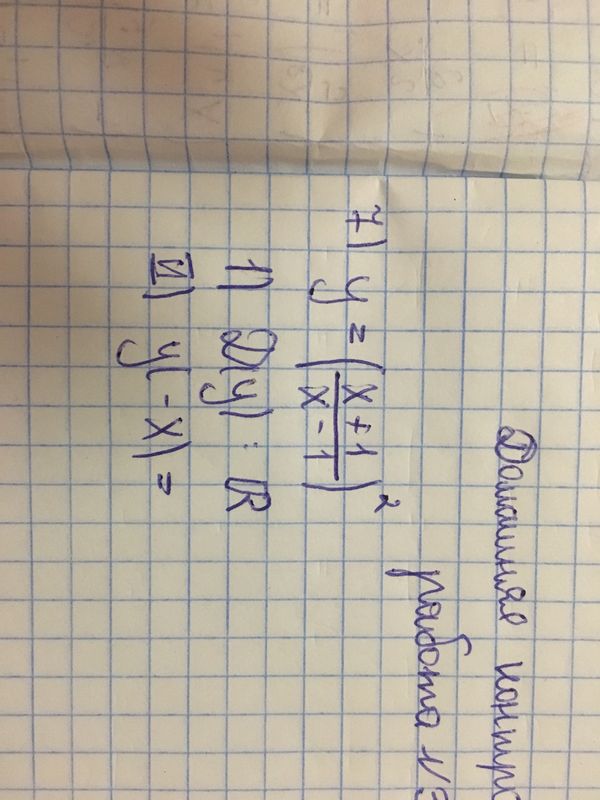 Домашняя контро
работа №3
7) y = (x + 1 / x - 1)²
I) D(y): R
II) y(-x) =